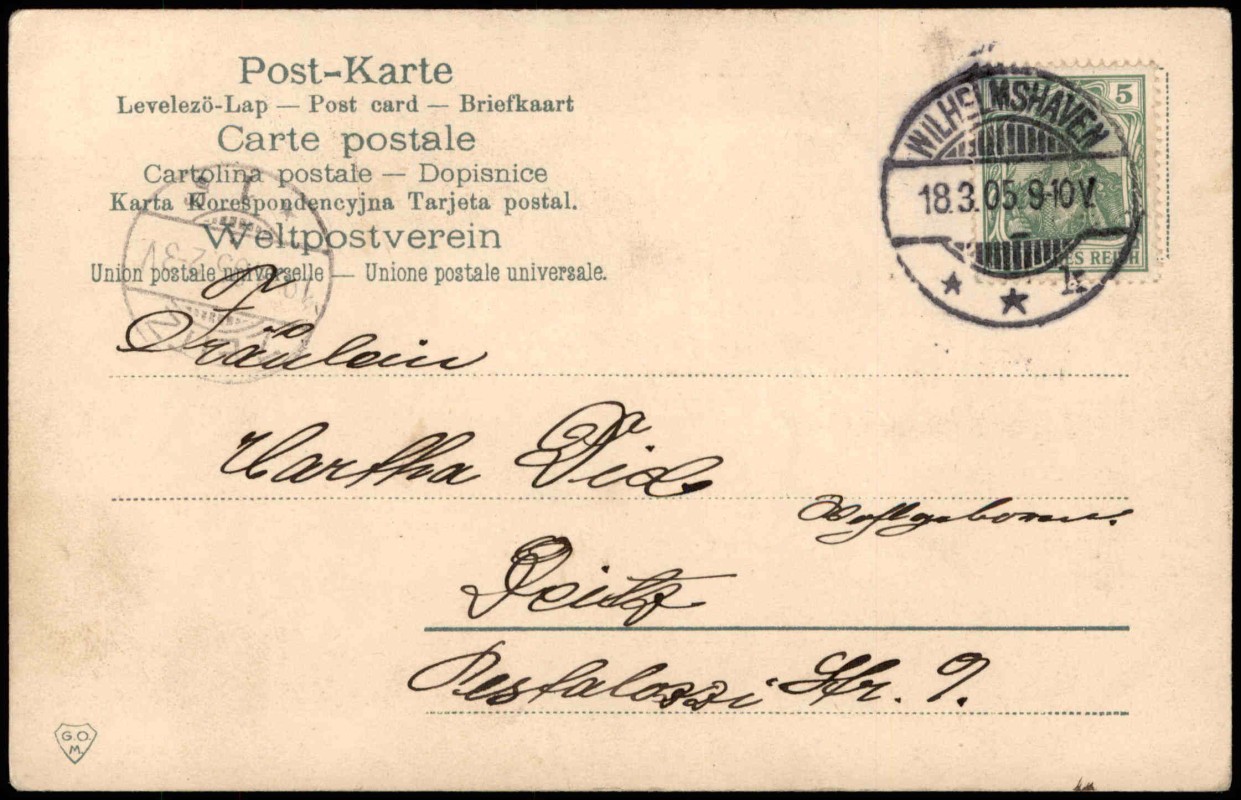 Post-Karte
Levelezö-Lap — Post card — Briefkaart
Carte postale
Cartolina postale — Dopisnice
Karta Korespondencyjna Tarjeta postal.
Weltpostverein
Union postale universelle — Unione postale universale.
WILHELMSHAVEN
18.3.05.9-10V.
★ ★ k
5
ES REICH
Fräulein
Martha
Wohlgeboren.
Pestalozzi Str. 9.
G.O.
M.